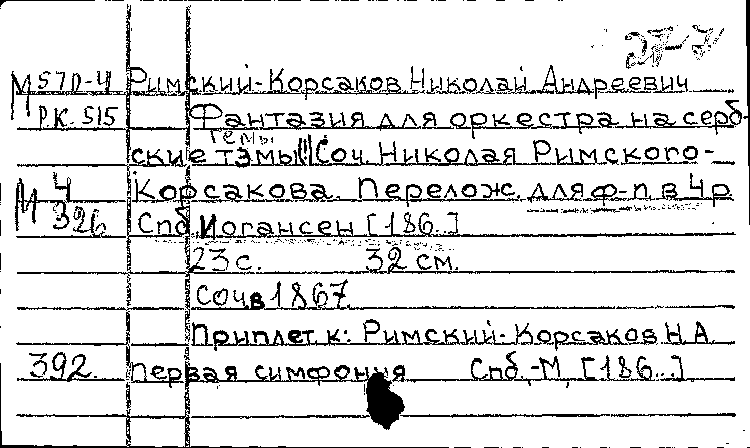 27-7
М 570-4 Римский-Корсаков Николай Андреевич
РК. 515 Фантазия для оркестра на серб-
темы
ские тэмы!!! Соч. Николая Римского-
М 4 Корсакова. Перелож. для ф-п в 4 р
326 Спб. Иогансен [186..]
23 с. 32 см.
Соч в 1867
Приплет. к: Римский-Корсаков Н. А.
392. Первая симфония Спб.-М, [186..]